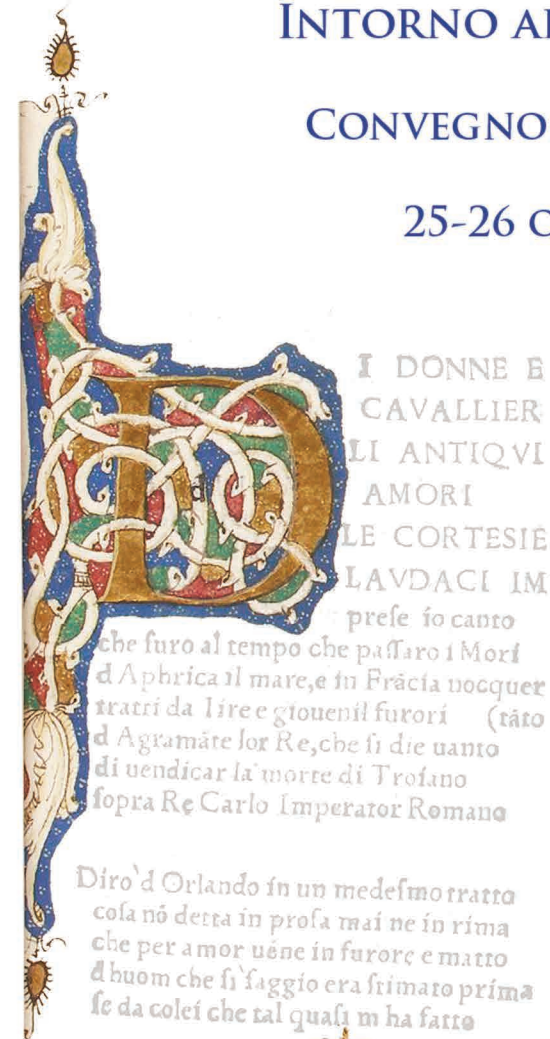 INTORNO AL
CONVEGNO
25-26 O
D
I DONNE E
CAVALLIER
LI ANTIQVI
AMORI
LE CORTESIE
LAVDACI IM
prese io canto
che furo al tempo che passaro i Mori
d Aphrica il mare,e in Frãcia nocquer
tratti da lire e giouenil furori (tãto
d Agramãte lor Re,che si die uanto
di uendicar la morte di Troiano
sopra Re Carlo Imperator Romano
Diro d Orlando in un medesmo tratto
cosa nõ detta in prosa mai ne in rima
che per amor uẽne in furore e matto
d huom che si saggio era stimato prima
se da colei che tal quasi m ha fatto